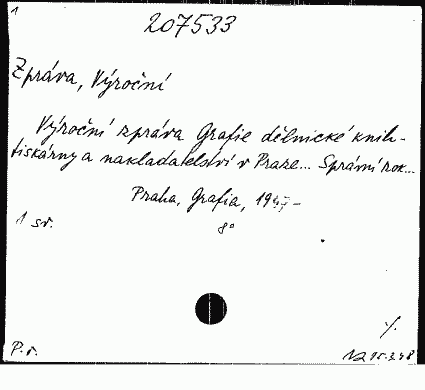 1
207533
Zpráva, Výroční
Výroční zpráva Grafie dělnické knih-
tiskárny a nakladatelství v Praze... Správní rok...
Praha, Grafia, 1947-
1 sv. 8°
P. r.
15.3.48